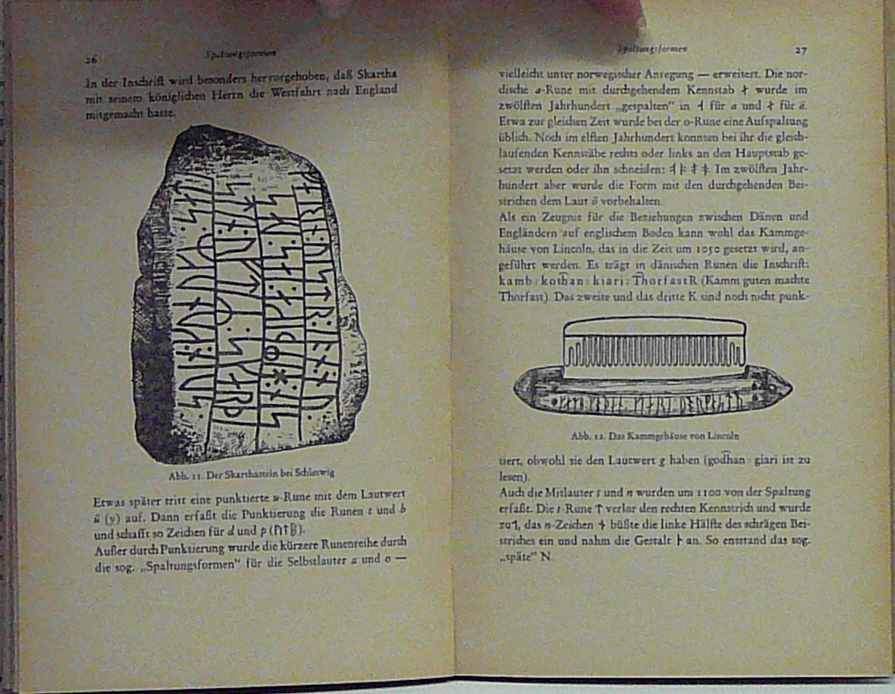 26
Spaltungsformen
In der Inschrift wird besonders hervorgehoben, daß Skartha
mit seinem königlichen Herrn die Westfahrt nach England
mitgemacht hatte.
Abb. 11. Der Skarthastein bei Schleswig
Etwas später tritt eine punktierte u-Rune mit dem Lautwert
ü (y) auf. Dann erfaßt die Punktierung die Runen t und b
und schafft so Zeichen für d und p
Außer durch Punktierung wurde die kürzere Runenreihe durch
die sog. „Spaltungsformen“ für die Selbstlauter a und o —
Spaltungsformen
27
vielleicht unter norwegischer Anregung — erweitert. Die nor-
dische a-Rune mit durchgehendem Kennstab ᚭ wurde im
zwölften Jahrhundert „gespalten“ in ᛆ für a und ᛅ für ä.
Etwa zur gleichen Zeit wurde bei der o-Rune eine Aufspaltung
üblich. Noch im elften Jahrhundert konnten bei ihr die gleich-
laufenden Kennstäbe rechts oder links an den Hauptstab ge-
setzt werden oder ihn schneiden: Im zwölften Jahr-
hundert aber wurde die Form mit den durchgehenden Bei-
strichen dem Laut ö vorbehalten.
Als ein Zeugnis für die Beziehungen zwischen Dänen und
Engländern auf englischem Boden kann wohl das Kammge-
häuse von Lincoln, das in die Zeit um 1050 gesetzt wird, an-
geführt werden. Es trägt in dänischen Runen die Inschrift:
kamb : kothan : kiari : ThorfastR (Kamm guten machte
Thorfast). Das zweite und das dritte K sind noch nicht punk-
Abb. 12. Das Kammgehäuse von Lincoln
tiert, obwohl sie den Lautwert g haben (godhan : giari ist zu
lesen).
Auch die Mitlauter t und n wurden um 1100 von der Spaltung
erfaßt. Die t-Rune ᛏ verlor den rechten Kennstrich und wurde
zu ᛐ, das n-Zeichen ᚾ büßte die linke Hälfte des schrägen Bei-
striches ein und nahm die Gestalt ᚿ an. So entstand das sog.
„späte“ N.